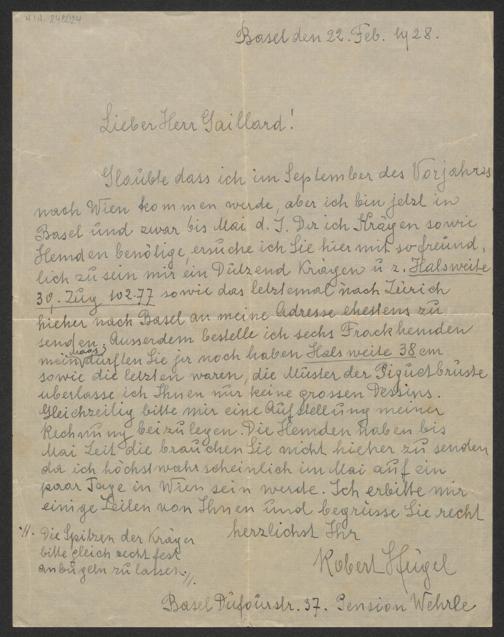 Basel den 22. Feb. 1928.
Lieber Herr Gaillard!
Glaubte dass ich im September des Vorjahres
nach Wien kommen werde, aber ich bin jetzt in
Basel und zwar bis Mai d. J. Da ich Krägen sowie
Hemden benötige, ersuche ich Sie hiermit so freund,
lich zu sein mir ein Dutzend Krägen u z. Halsweite
39. Zug 102-77 sowie das letztemal nach Zürich
hieher nach Basel an meine Adresse ehestens zu
senden. Ausserdem bestelle ich sechs Frackhemden
mein Maas dürften Sie ja noch haben Halsweite 38 cm
sowie die letzten waren, die Muster der Piquetbrüste
überlasse ich Ihnen nur keine grossen Dessins.
Gleichzeitig bitte mir eine Aufstellung meiner
Rechnung beizulegen. Die Hemden haben bis
Mai Zeit die brauchen Sie nicht hieher zu senden
da ich höchstwahrscheinlich im Mai auf ein
paar Tage in Wien sein werde. Ich erbitte mir
einige Zeilen von Ihnen und begrüsse Sie recht
herzlichst Ihr
·//. Die Spitzen der Kräger
bitte gleich recht fest
anbügeln zu lassen. //.
Robert Hügel
Basel Dufourstr. 37. Pension Wehrle